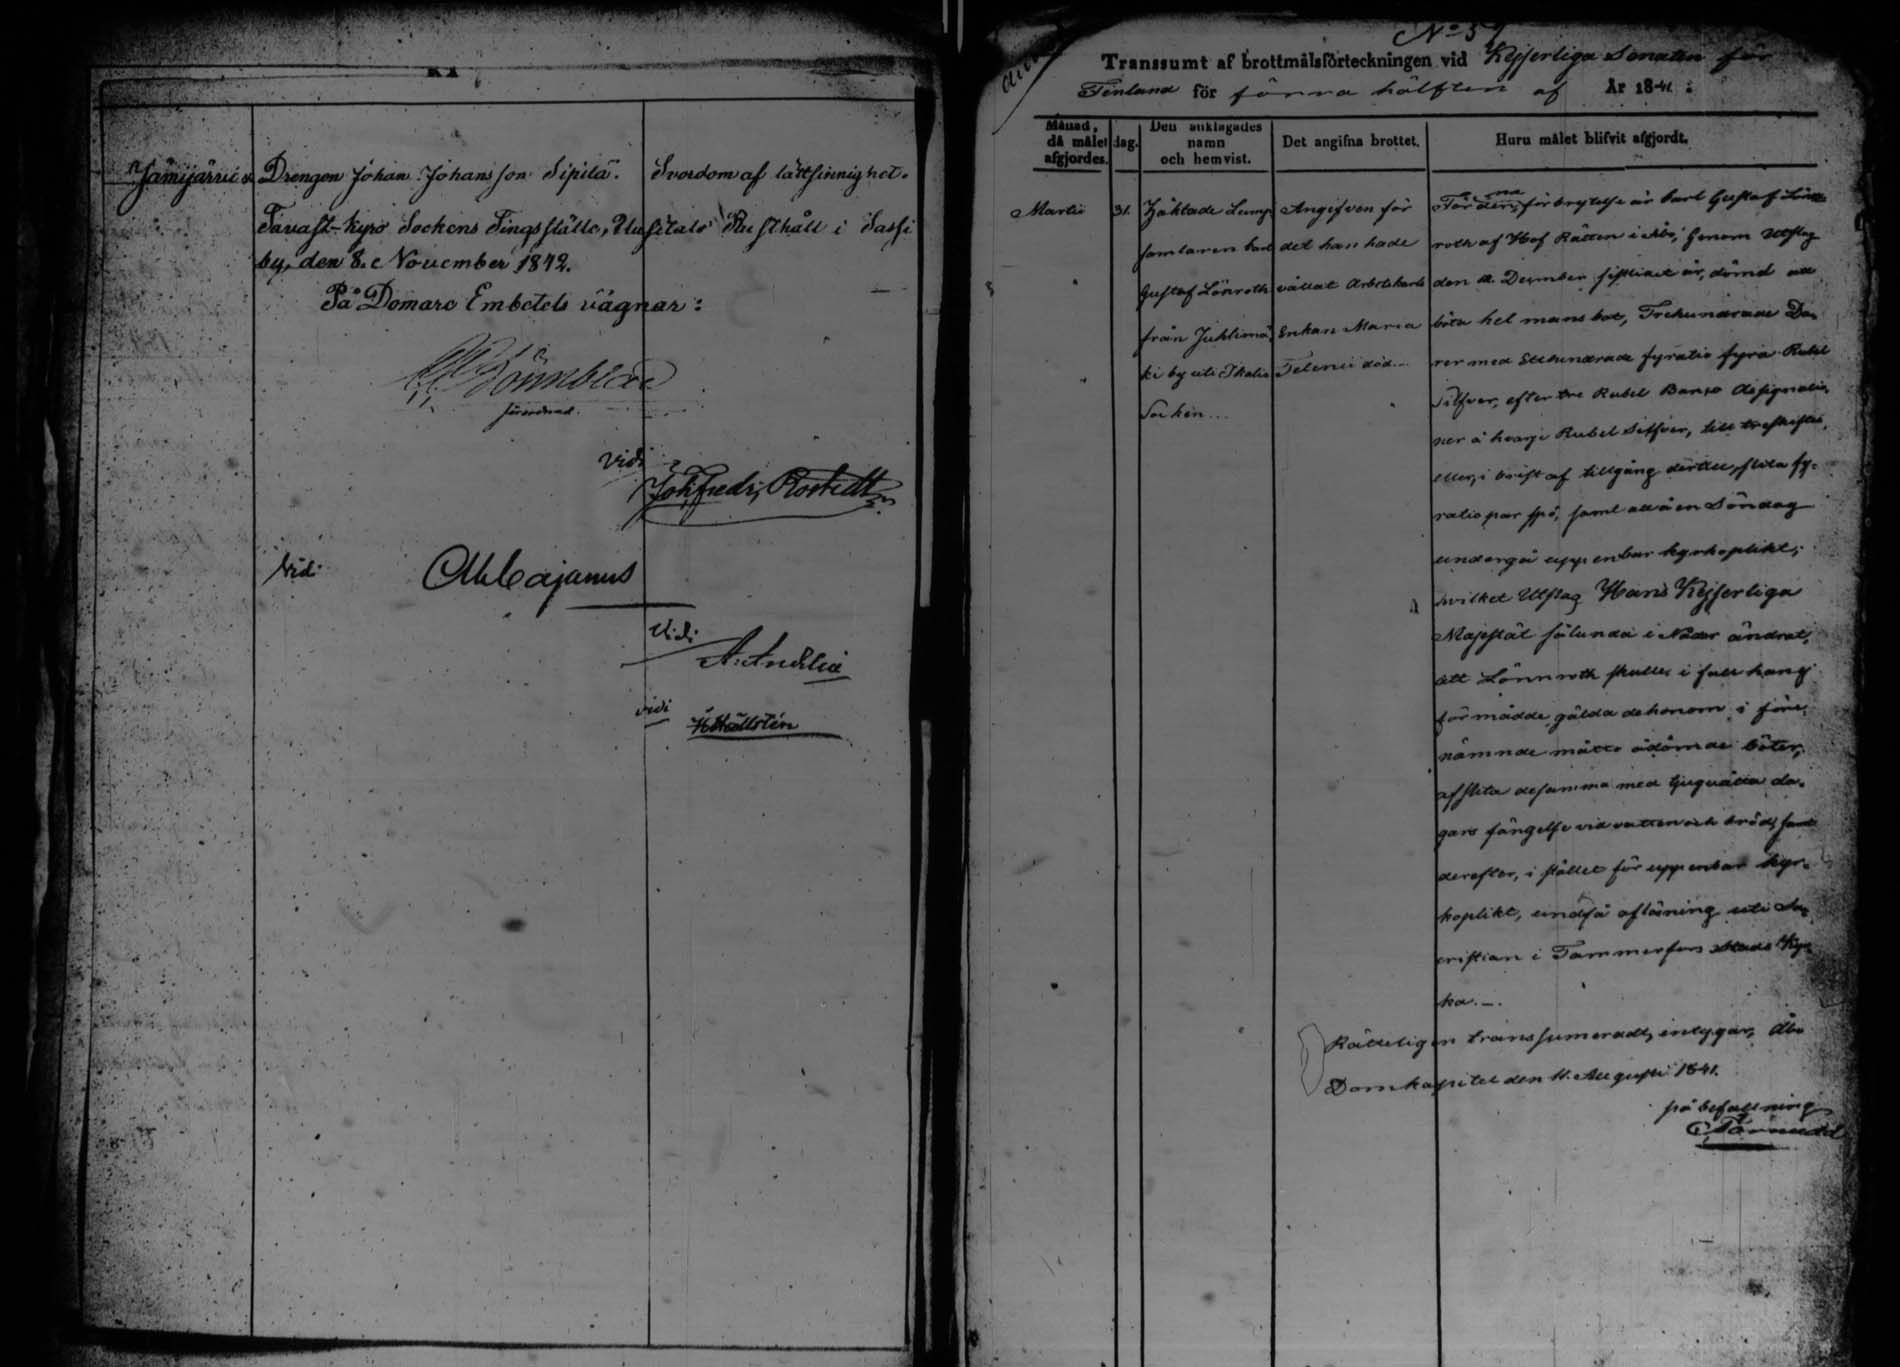 Jämijärvi Drengen Johan Johansson Sipilä. Svordom af lättsinnighet.
Tavast-Kyro Sockens Tingsställe, Uusitalo Rusthåll i Sassi
by, den 8. November 1842.
På Domare Embetets vägnar:
förordnad.
Vidi
Joh. Fredr. Rostedt
Vidi Cajanus
Vidi
Vidi
Hällstén
No 5
Transsumt af brottmålsförteckningen vid Kejserliga Senaten för
Finland för förra hälften af År 1841:
Månad, då målet afgjordes. dag. Den anklagades namn och hemvist. Det angifna brottet. Huru målet blifvit afgjordt.
Martii 31.
Häktade Lump
samlaren Carl
Gustaf Lönroth
från Juhtimä
ki by uti Ikalis
Socken...
Angifven för
det han hade
vållat Arbetskarls
Enkan Maria
död...
För förbrytelse är Carl Gustaf Lönn
roth af Hof Rätten i Åbo, genom Utslag
den 11. December sistlidet år, dömd att
böta hel mans bot, Trehundrade Da-
rer med Etthundrade fyratio fyra Rubel
Silfver, efter tre Rubel Banco Assignatio
ner å hvarje Rubel Silfver, till treskiftes,
eller, i brist af tillgång dertill, slita fy-
ratio par spö, samt att å en Söndag
undergå uppenbar kyrkoplikt;
hvilket Utslag Hans Kejserliga
Majestät sålunda i Nåder ändrat,
att Lönnroth skulle, i fall han ej
förmådde gälda de honom i före
nämnde måtto ådömde böter,
afslita desamma med tjuguåtta da-
gars fängelse vid vatten och bröd, samt
derefter, i stället för uppenbar kyr-
koplikt, undfå aflösning uti Sa-
cristian i Tammerfors Stads Kyr-
ka.—.
Rätteligen transsumeradt, intygar, Åbo
Domkapitel den 11. Augusti 1841.
på befallning